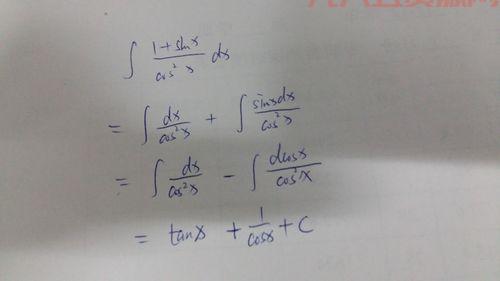 ∫ (1+sinx)/(cos²x) dx
= ∫ dx/(cos²x) + ∫ (sinxdx)/(cos²x)
= ∫ dx/(cos²x) − ∫ (dcosx)/(cos²x)
= tanx + 1/(cosx) + C